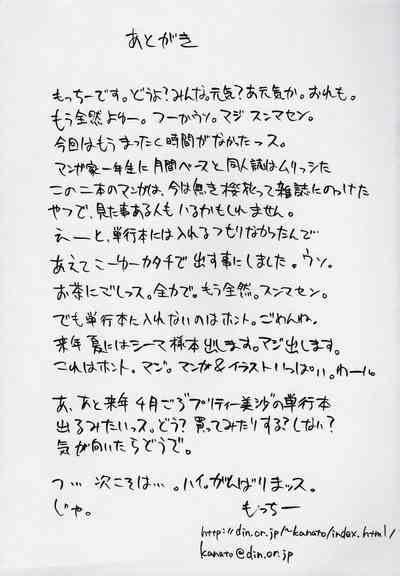 あとがき
もっちーです。どうよ?みんな。元気?あ元気か。おれも。
もう全然よゆー。つーかウソ。マジ スンマセン。
今回はもうまったく時間がなかたっス。
マンガ家一年生に月間ペースと同人誌はムリっした
この二本のマンガは、今は無き桜桃って雑誌にのっけた
やつで、見た事ある人もいるかもしれません。
えーと、単行本には入れるつもりなかったんで…
あえてこーゆーカタチで出す事にしました。ウソ。
お茶にごしっス。全力で。もう全然。スンマセン。
でも単行本に入れないのはホント。ごわんね。
来年 夏にはシーマ様本出します。マジ出します。
これはホント。マジ。マンガ&イラストいっぱい。わーい。
あ、あと来年4月ごろ"プリティー美沙"の単行本
出るみたいっス。どう?買ってみたりする?しない?
気が向いたらどうぞ。
つ… 次こそは…。ハイ。がんばりまッス。
じゃ。 もっちー
http://din.or.jp/~kanato/index.html/
kanato@din.or.jp